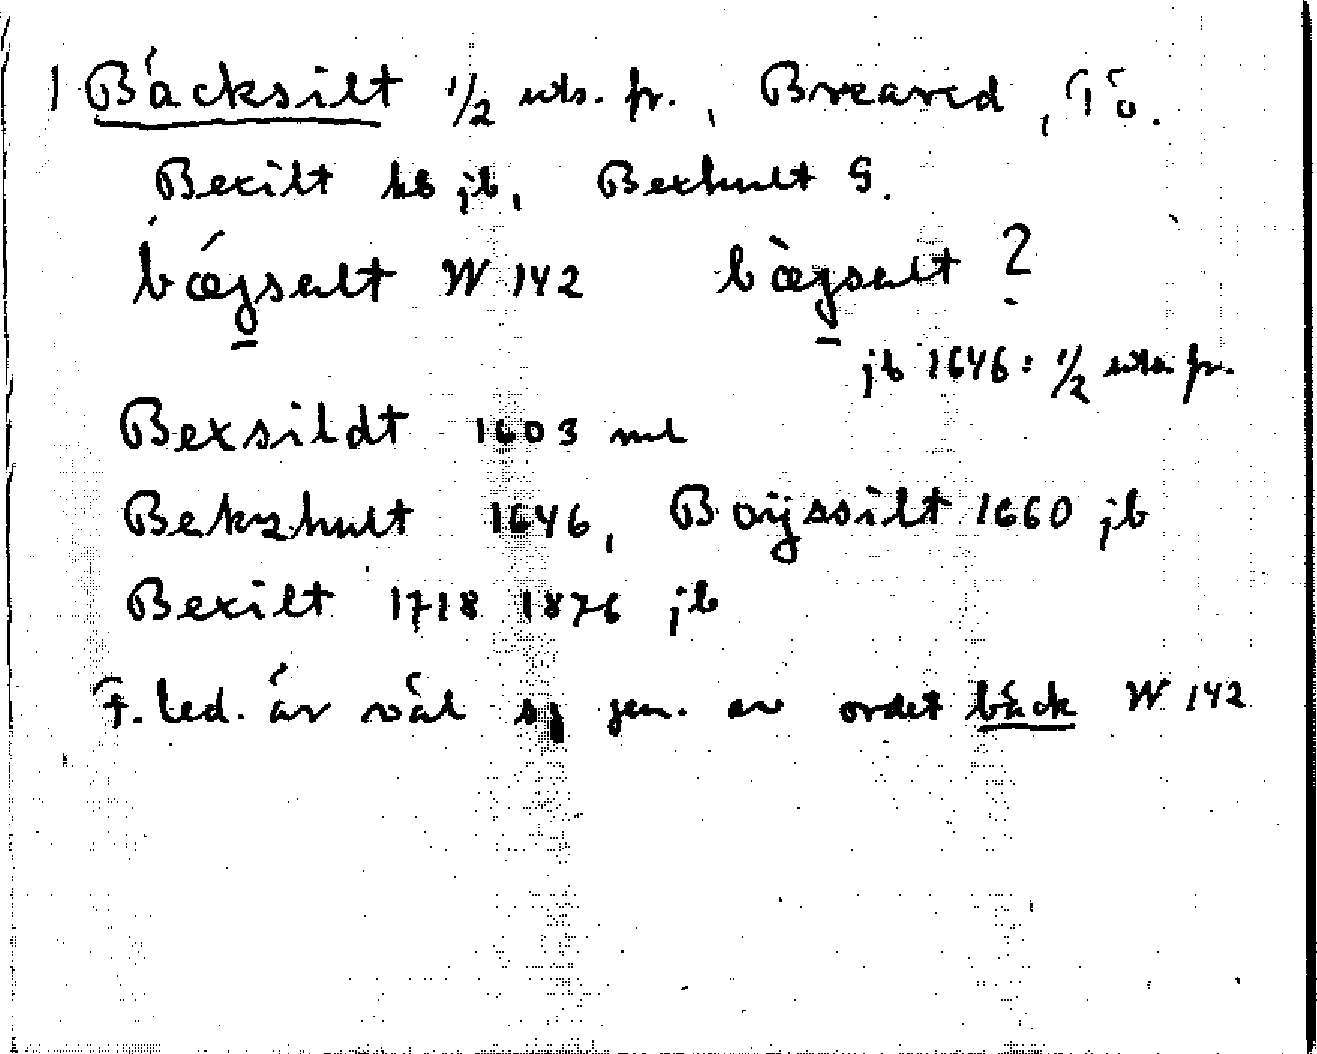 1 Bäcksilt 1/2 uts. fr., Breared, Tö.
Bexilt hb jb, Bexhult G.
bægselt W 142 bægselt ?
jb 1646: 1/2 uts. fr.
Bexsildt 1603 ml
Bekzhult 1646, Böijssilt 1660 jb
Bexilt 1718 1876 jb
F. led. är väl sg gen. av ordet bäck W 142